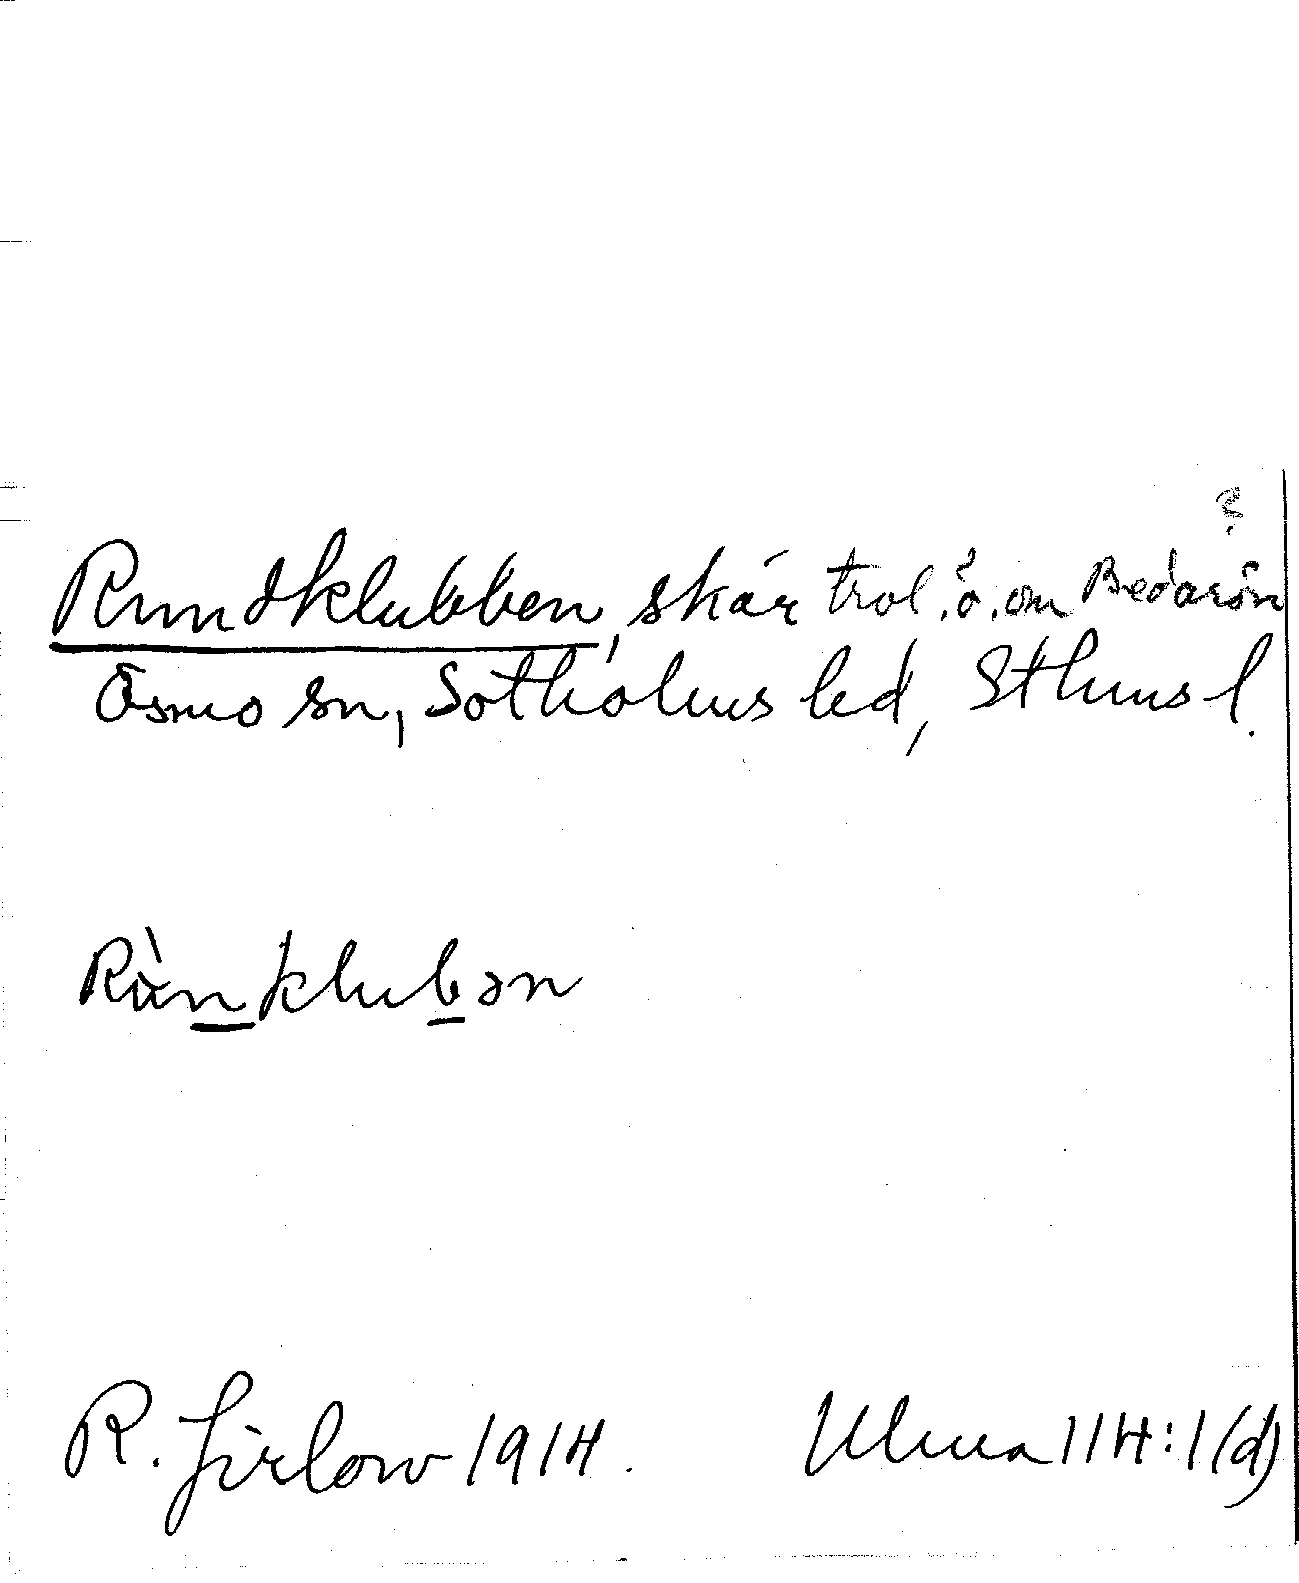 ?
Rundklubben, skär trol. ö. om Bedarön
Ösmo sn, Sotholms hd, Sthms l.
Rùnklubən
R. Jirlow 1914.
Ulma 114:1(d)